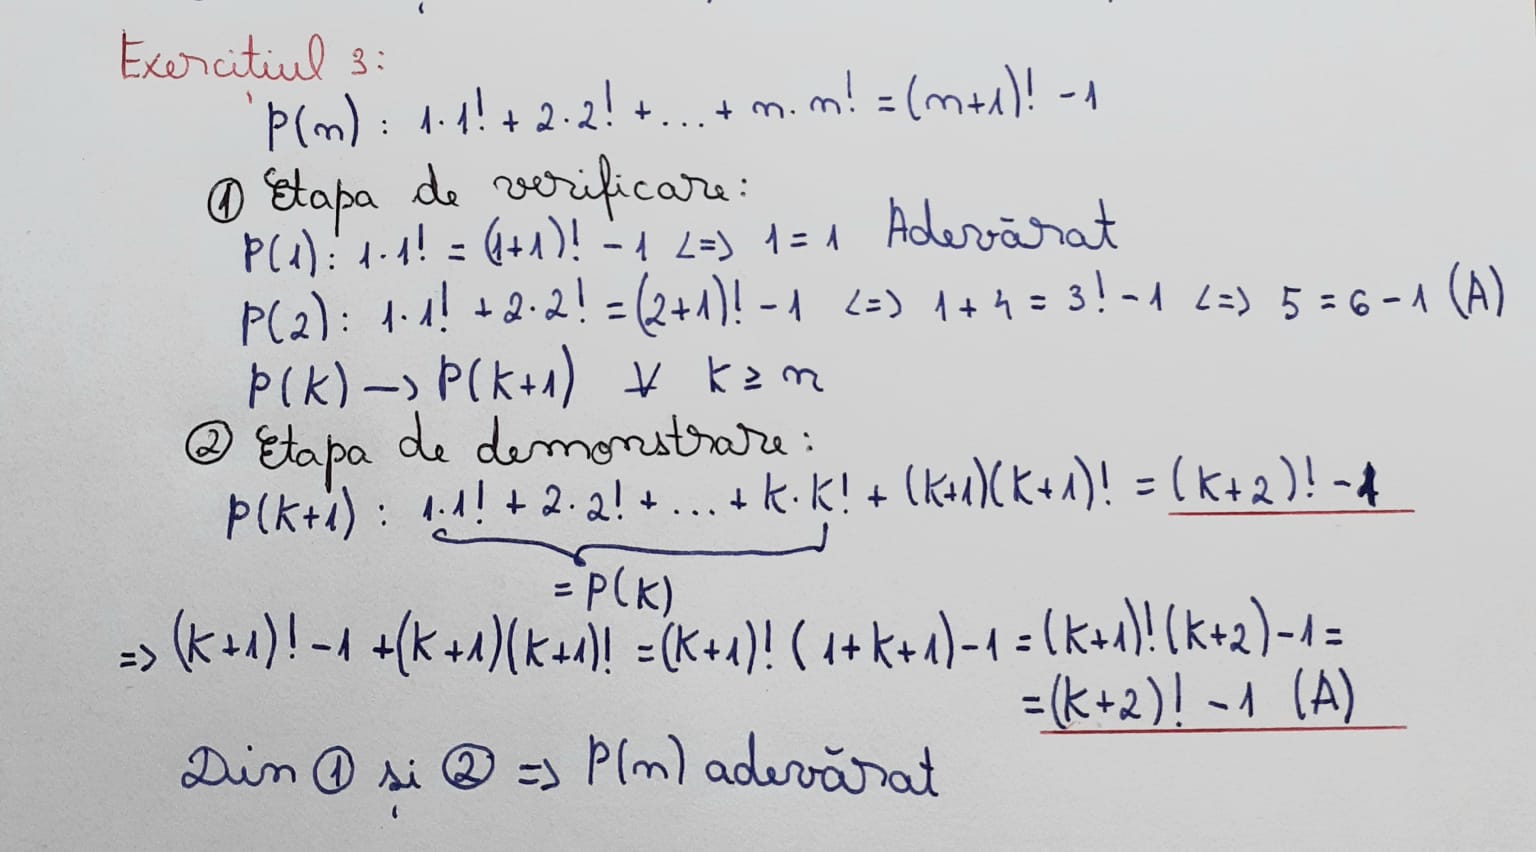 Exercițiul 3:
P(n) : 1·1! + 2·2! + ... + n·n! = (n+1)! - 1
① Etapa de verificare:
P(1): 1·1! = (1+1)! - 1 <=> 1 = 1 Adevărat
P(2): 1·1! + 2·2! = (2+1)! - 1 <=> 1 + 4 = 3! - 1 <=> 5 = 6 - 1 (A)
P(k) -> P(k+1) ∀ k ≥ n
② Etapa de demonstrare:
P(k+1) : 1·1! + 2·2! + ... + k·k! + (k+1)(k+1)! = (k+2)! - 1
= P(k)
=> (k+1)! - 1 + (k+1)(k+1)! = (k+1)! (1+k+1) - 1 = (k+1)! (k+2) - 1 =
= (k+2)! - 1 (A)
Din ① și ② => P(n) adevărat